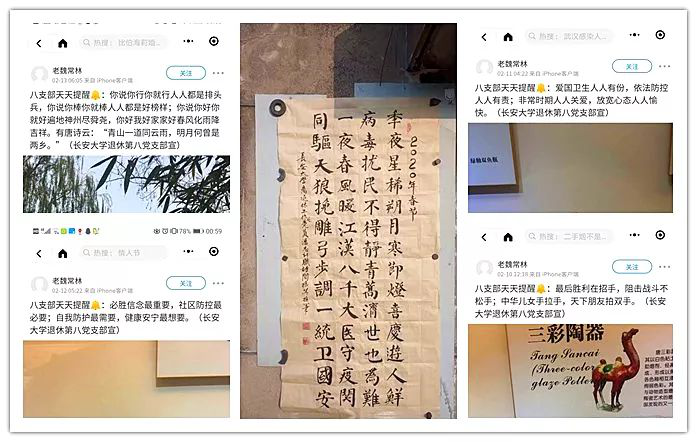 热搜：比伯海莉婚...
老魏常林
02-13 06:05 来自 iPhone客户端
关注
八支部天天提醒🔔：你说你行你就行人人都是排头
兵，你说你棒你就棒人人都是好榜样；你说你好你
就好遍地神州尽舜尧，你好我好家家好春风化雨降
吉祥。有唐诗云：“青山一道同云雨，明月何曾是
两乡。”（长安大学退休第八党支部宣）
78% 00:59
热搜：情人节
老魏常林
02-12 05:22 来自 iPhone客户端
关注
八支部天天提醒🔔：必胜信念最重要，社区防控最
必要；自我防护最需要，健康安宁最想要。（长安
大学退休第八党支部宣）
2020年春节
季夜星稀朔月寒卸燈喜慶遊人鮮
病毒扰民不得静青萬濟世也為難
一夜春風暖江漢八千大医守疫関
同驅天狼挽雕弓步調一統卫國安
長安大學
热搜：武汉感染人...
老魏常林
02-11 04:22 来自 iPhone客户端
关注
八支部天天提醒🔔：爱国卫生人人有份，依法防控
人人有责；非常时期人人关爱，放宽心态人人愉
快。（长安大学退休第八党支部宣）
绿釉双鱼瓶
热搜：二手烟不是...
老魏常林
02-10 12:18 来自 iPhone客户端
关注
八支部天天提醒🔔：最后胜利在招手，阻击战斗不
松手；中华儿女手拉手，天下朋友拍双手。（长安
大学退休第八党支部宣）
三彩陶器
Tang Sancai
(Three-color
glaze Potter